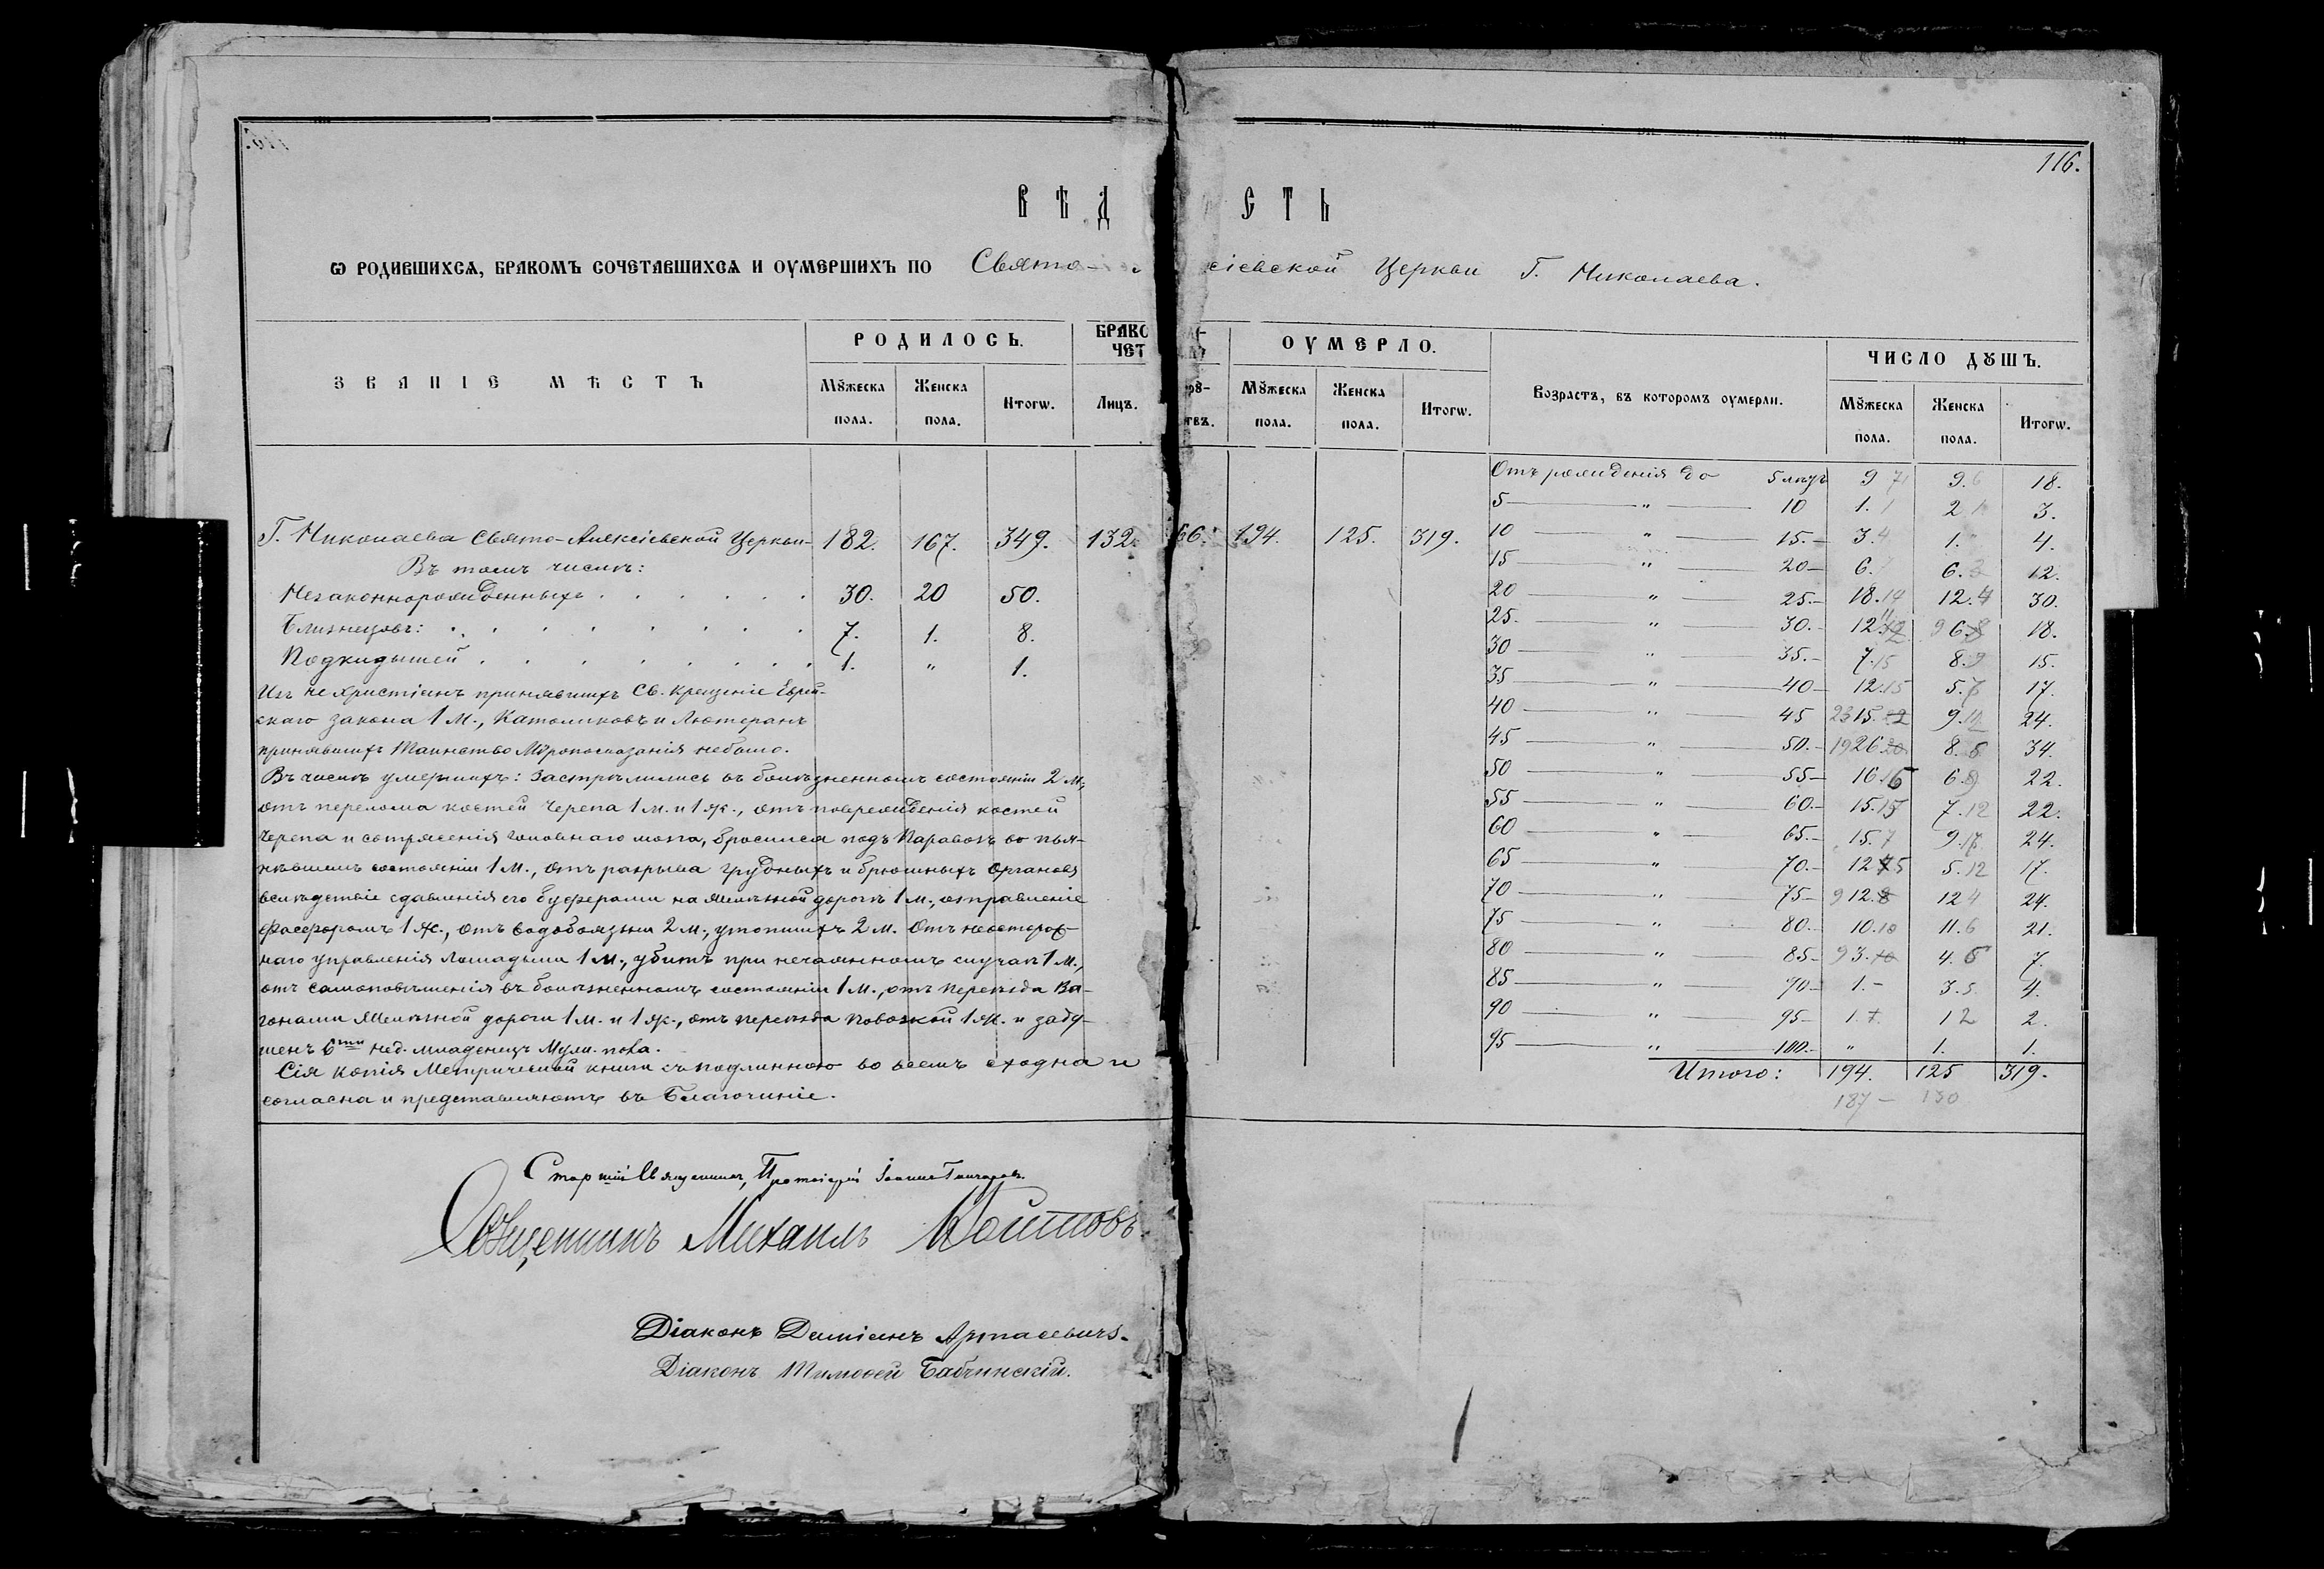 116.
ВѢД СТЬ
Ѡ РОДИВШИХСѦ, БРАКОМЪ СОЧЕТАВШИХСѦ И ОУМЕРШИХЪ ПО Свято- сіевской Церкви Г. Николаева.
ЗВАНІЕ МѢСТЪ
РОДИЛОСЬ.
Мꙋжеска пола.
Женска пола.
Итогѡ.
БРАКО ЧЕТ
Лицъ.
ОУМЕРЛО.
Мꙋжеска пола.
Женска пола.
Итогѡ.
Возрастъ, въ которомъ оумерли.
ЧИСЛО ДꙋШЪ.
Мꙋжеска пола.
Женска пола.
Итогѡ.
Г. Николаева Свято-Алексіевской Церкви- 182. 167. 349. 132. 66. 194. 125. 319.
Въ томъ числѣ:
Незаконнорожденныхъ . . . . . . 30. 20 50.
Близнецовъ: . . . . . . . . 7. 1. 8.
Подкидышей . . . . . . . . 1. " 1.
Изъ не христіанъ принявшихъ Св. крещеніе Еврей-
скаго закона 1 м., Католиковъ и Лютеранъ
принявшихъ Таинство Мѵропомазанія небыло.
Въ числѣ умершихъ: застрѣлились въ болѣзненномъ состояніи 2 м.,
отъ перелома костей черепа 1 м. и 1 ж., отъ поврежденія костей
черепа и сотрясенія головнаго мозга, бросился подъ Паравозъ во пья-
нѣвшемъ состояніи 1 м., отъ разрыва грудныхъ и брюшныхъ органовъ
вслѣдствіе сдавленія его буферами на желѣзной дорогѣ 1 м., отравленіе
фосфоромъ 1 ж., отъ водобоязни 2 м., утопшихъ 2 м. отъ неосторож-
наго управленія лошадьми 1 м., убитъ при нечаянномъ случаѣ 1 м.,
отъ самоповѣшенія въ болѣзненномъ состояніи 1 м., отъ переѣзда Ва-
гонами Желѣзной дороги 1 м. и 1 ж., отъ переѣзда повозкой 1 ж. и заду-
шенъ 6ти нед. младенецъ Муж. пола.
Сія копія Метрической книги съ подлинною во всемъ сходна и
согласна и представляютъ въ Благочиніе.
Отъ рожденія до 5 лѣтъ 9 9. 18.
5 — " — 10 1. 2 3.
10 — " — 15.- 3. 1. 4.
15 — " — 20- 6. 6. 12.
20 — " — 25.- 18. 12. 30.
25. — " — 30.- 12 6. 18.
30 — " — 35.- 7. 8. 15.
35 — " — 40- 12. 5. 17.
40 — " — 45 15. 9. 24.
45 — " — 50.- 26 8. 34.
50 — " — 55- 16 6. 22.
55 — " — 60.- 15. 7. 22.
60 — " — 65.- 15. 9. 24.
65 — " — 70.- 12 5. 17.
70 — " — 75- 12. 12 24.
75 — " — 80.- 10. 11. 21.
80 — " — 85- 3. 4. 7.
85 — " — 90- 1. 3. 4.
90 — " — 95- 1. 1 2.
95 — " — 100.- " 1. 1.
Итого: 194. 125 319.
187 — 130
Старшій Священникъ, Протоіерей Іоаннъ Гончаровъ.
Священникъ Михаилъ
Діаконъ Даміанъ
Діаконъ Тимоѳей Бабчинскій.